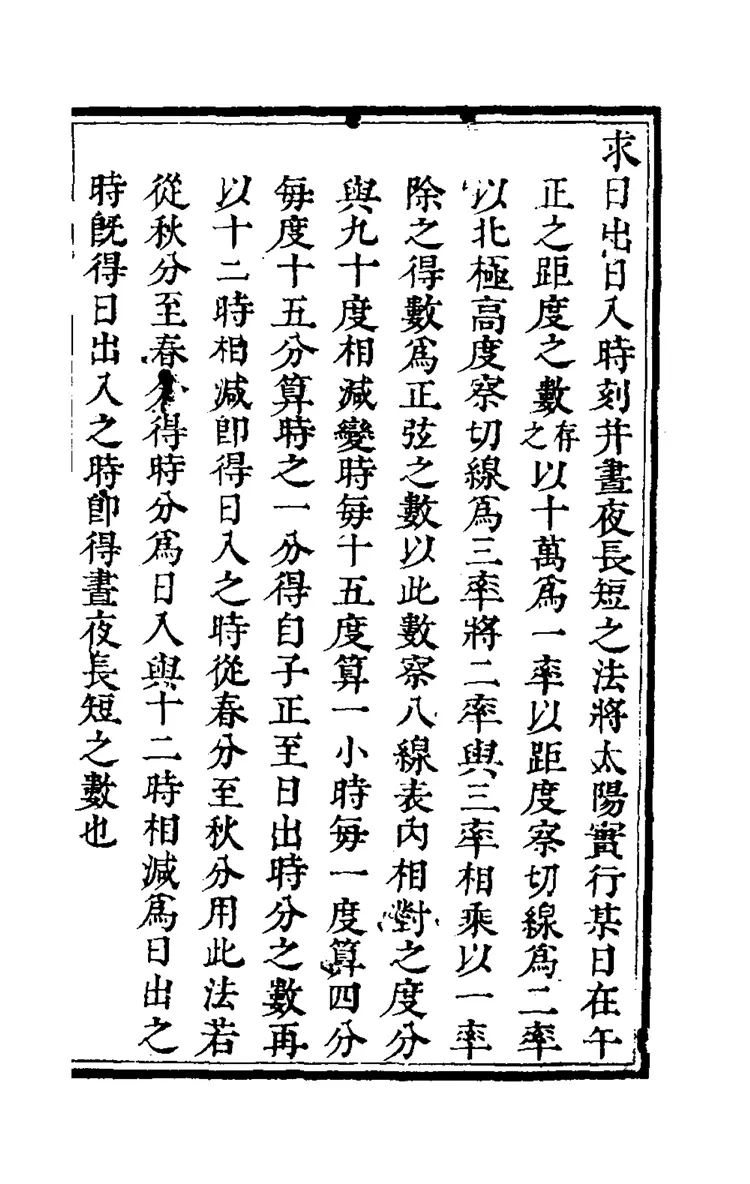 求日出日入時刻并晝夜長短之法將太陽實行某日在午
正之距度之數存之以十萬爲一率以距度察切線爲二率
以北極高度察切線爲三率將二率與三率相乘以一率
除之得數爲正弦之數以此數察八線表內相對之度分
與九十度相減變時每十五度算一小時每一度算四分
每度十五分算時之一分得自子正至日出時分之數再
以十二時相減卽得日入之時從春分至秋分用此法若
從秋分至春分得時分爲日入與十二時相減爲日出之
時旣得日出入之時卽得晝夜長短之數也